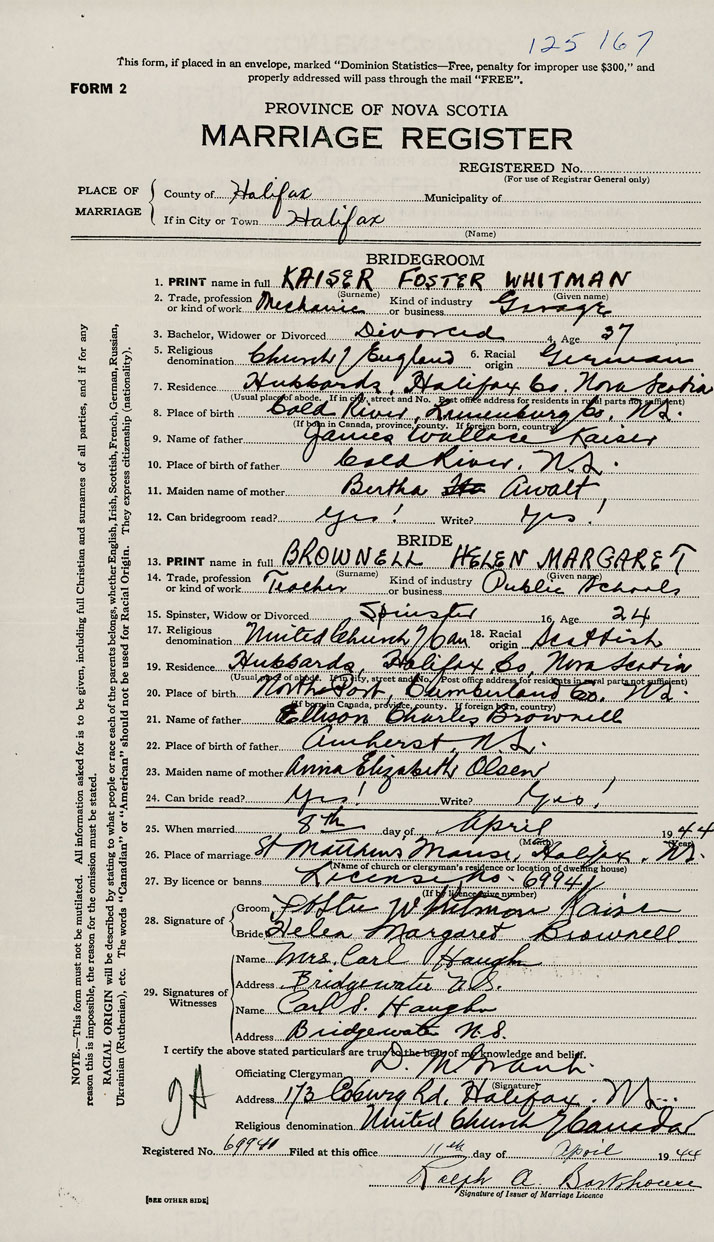 125 167
This form, if placed in an envelope, marked "Dominion Statistics—Free, penalty for improper use $300," and
properly addressed will pass through the mail "FREE".
FORM 2
PROVINCE OF NOVA SCOTIA
MARRIAGE REGISTER
REGISTERED No.
(For use of Registrar General only)
PLACE OF MARRIAGE
County of Halifax Municipality of
If in City or Town Halifax
(Name)
BRIDEGROOM
1. PRINT name in full KAISER FOSTER WHITMAN
(Surname) (Given name)
2. Trade, profession or kind of work Mechanic Kind of industry or business Garage
3. Bachelor, Widower or Divorced Divorced 4. Age 37
5. Religious denomination Church of England 6. Racial origin German
7. Residence Hubbards, Halifax Co. Nova Scotia
(Usual place of abode. If in city, street and No. Post office address for residents in rural parts not sufficient)
8. Place of birth Gold River, Lunenburg Co, N.S.
(If born in Canada, province, county. If foreign born, country)
9. Name of father James Wallace Kaiser
10. Place of birth of father Gold River, N.S.
11. Maiden name of mother Bertha Awalt,
12. Can bridegroom read? Yes! Write? Yes!
BRIDE
13. PRINT name in full BROWNELL HELEN MARGARET
(Surname) (Given name)
14. Trade, profession or kind of work Teacher Kind of industry or business Public Schools
15. Spinster, Widow or Divorced Spinster 16. Age 24
17. Religious denomination United Church of Can 18. Racial origin Scottish
19. Residence Hubbards, Halifax Co, Nova Scotia
(Usual place of abode. If in city, street and No. Post office address of residents in rural parts not sufficient)
20. Place of birth Northport, Cumberland Co. N.S.
(If born in Canada, province, county. If foreign born, country)
21. Name of father Ellison Charles Brownell
22. Place of birth of father Amherst, N.S.
23. Maiden name of mother Anna Elizabeth Olsen
24. Can bride read? Yes! Write? Yes!
25. When married 8th day of April 1944
(Month) (Year)
26. Place of marriage St Matthew's Manse, Halifax, N.S.
(Name of church or clergyman's residence or location of dwelling house)
27. By licence or banns License No. 69941
(If by licence give number)
28. Signature of
Groom Foster Whitman Kaiser
Bride Helen Margaret Brownell.
29. Signatures of Witnesses
Name Mrs. Carl Haughn
Address Bridgewater N.S.
Name Carl S. Haughn
Address Bridgewater N.S.
I certify the above stated particulars are true to the best of my knowledge and belief.
Officiating Clergyman D. M. Grant.
(Signature)
Address 173 Coburg Rd. Halifax. N.S.
Religious denomination United Church of Canada
Registered No. 69941 Filed at this office 11th day of April 1944
Ralph A. Barkhouse
Signature of Issuer of Marriage Licence
[SEE OTHER SIDE]
NOTE.—This form must not be mutilated. All information asked for is to be given, including full Christian and surnames of all parties, and if for any
reason this is impossible, the reason for the omission must be stated.
RACIAL ORIGIN will be described by stating to what people or race each of the parents belongs, whether English, Irish, Scottish, French, German, Russian,
Ukrainian (Ruthenian), etc. The words "Canadian" or "American" should not be used for Racial Origin. They express citizenship (nationality).